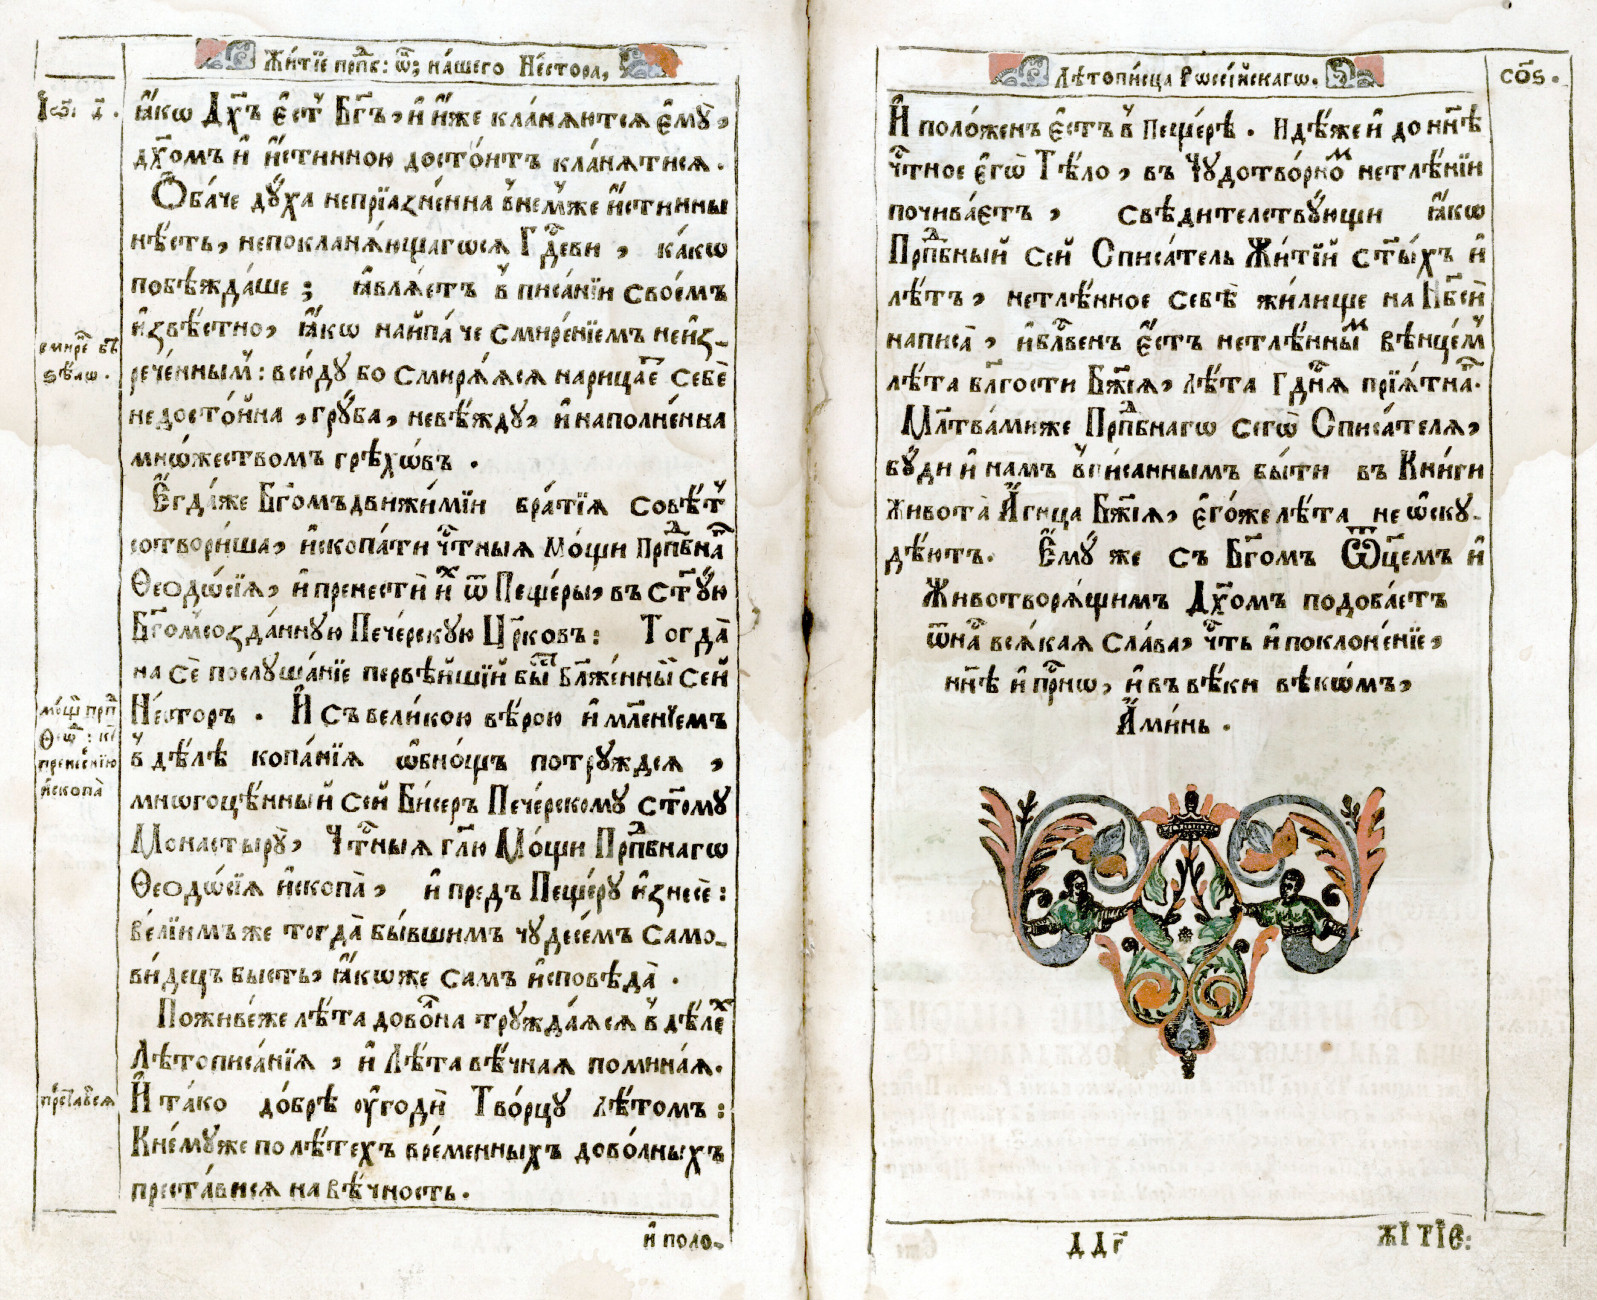 Житїе прпⷣб: ѿц҃; на́шего Не́стора,
І҆ѡ҃: д҃.
ꙗ҆́кѡ Дх҃ъ є҆́стъ Бг҃ъ, и҆ и҆̀же кла́нѧютсѧ є҆мꙋ̀,
дх҃омъ и҆ и҆́стинною досто́итъ кла́нѧтисѧ.
Ѻ҆ба́че дꙋ́ха непрїа́зненна в̾не́мже и҆́стинны
нѣ́сть, непокланѧ́ющагѡсѧ Гдⷭ҇еви, ка́кѡ
побѣжда́ше; ꙗ҆влѧ́етъ в̾ писа́нїи свое́мъ
и҆звѣ́стно, ꙗ҆́кѡ наипа́че смире́нїемъ неи҆з-
рече́ннымъ: всю́дꙋ бо смирѧ́ѧсѧ нарица́етъ себѐ
недосто́йна, грꙋ́ба, невѣ́ждꙋ, и҆ наполне́нна
мно́жествомъ грѣхѡ́въ.
смире́ бѣ̀
ѕѣлѡ̀.
Є҆гда́же Бг҃омъ дви́жимїи бра́тїѧ совѣ́тъ
сотвори́ша, и҆скопа́ти чⷭ҇тныѧ Мо́щи Прпⷣбнагѡ
Ѳеодѡ́сїѧ, и҆ пренестѝ и҆̀хъ ѿ Пеще́ры, въ ст҃ꙋ́ю
Бг҃омсозда́ннꙋю Пече́рскꙋю Цр҃ковъ: Тогда̀
на сѐ послꙋша́нїе первѣ́йшїй бы́сть Бл҃же́нный сей
Не́сторъ. И҆ съ вели́кою вѣ́рою и҆ мл҃е́нїемъ
в̾ дѣ́лѣ копа́нїѧ ѡ҆бно́щъ потрꙋ́ждсѧ,
многоцѣ́нный сей Би́серъ Пече́рскомꙋ ст҃о́мꙋ
Монастырꙋ̀, Чⷭ҇тныѧ гл҃ю Мо́щи Прпⷣбнагѡ
Ѳеодѡ́сїѧ и҆скопа̀, и҆ предъ Пеще́рꙋ и҆знесѐ:
ве́лїимъже тогда̀ бы́вшимъ чꙋдесе́мъ само-
ви́децъ бы́сть, ꙗ҆́кѡже самъ и҆сповѣ́да.
мо́щи прпⷣ
Ѳеѡⷣ: къ
пренесе́нїю
и҆скопа̀
Поживе́же лѣ́та дово́лна трꙋжда́ѧсѧ в̾ дѣ́лехъ
Лѣтописа́нїѧ, и҆ Лѣ́та вѣ́чнаѧ помина́ѧ.
И҆ та́ко до́брѣ ᲂу҆годѝ Творцꙋ̀ лѣ́томъ:
Кнемꙋ́же по лѣ́техъ вре́менныхъ дово́лныхъ
преста́висѧ на вѣ́чность.
преста́висѧ
и҆ поло-
Лѣтопи́сца Рѡссі́йскагѡ.
со҃ѕ.
И҆ поло́женъ є҆́стъ в̾ Пеще́рѣ. Идѣ́же и҆ до нн҃ѣ
чⷭ҇тное є҆гѡ̀ Тѣ́ло, въ Чꙋдотво́рномъ нетлѣ́нїи
почива́етъ, свѣди́телствꙋющи ꙗ҆́кѡ
Прпⷣбный сей Списа́тель Жи́тїй ст҃ы́хъ и҆
лѣ́тъ, нетлѣ́нное себѣ̀ жи́лище на Нб҃сѝ
написа̀, и҆ вбл҃ве́нъ є҆́стъ нетлѣ́ннымъ вѣнце́мъ
лѣ́та бл҃гости Бж҃їѧ, лѣ́та Гдⷭ҇нѧ прїѧ́тна.
Мл҃тва́миже Прпⷣбнагѡ сегѡ̀ Списа́телѧ,
бꙋ́ди и҆ намъ в̾пи́саннымъ бы́ти въ Кни́ги
живота̀ А҆́гнца Бж҃їѧ, є҆гѡ́же лѣ́та не ѡ҆скꙋ-
дѣ́ютъ. Є҆мꙋ́же съ Бг҃омъ Ѿц҃емъ и҆
Животворѧ́щимъ Дх҃омъ подоба́етъ
ѿ на́съ всѧ́каѧ сла́ва, чⷭ҇ть и҆ поклоне́нїе,
нн҃ѣ и҆ прⷭ҇нѡ, и҆ въ вѣ́ки вѣкѡ́мъ,
А҆ми́нь.
д д г҃
ЖІТЇЕ: